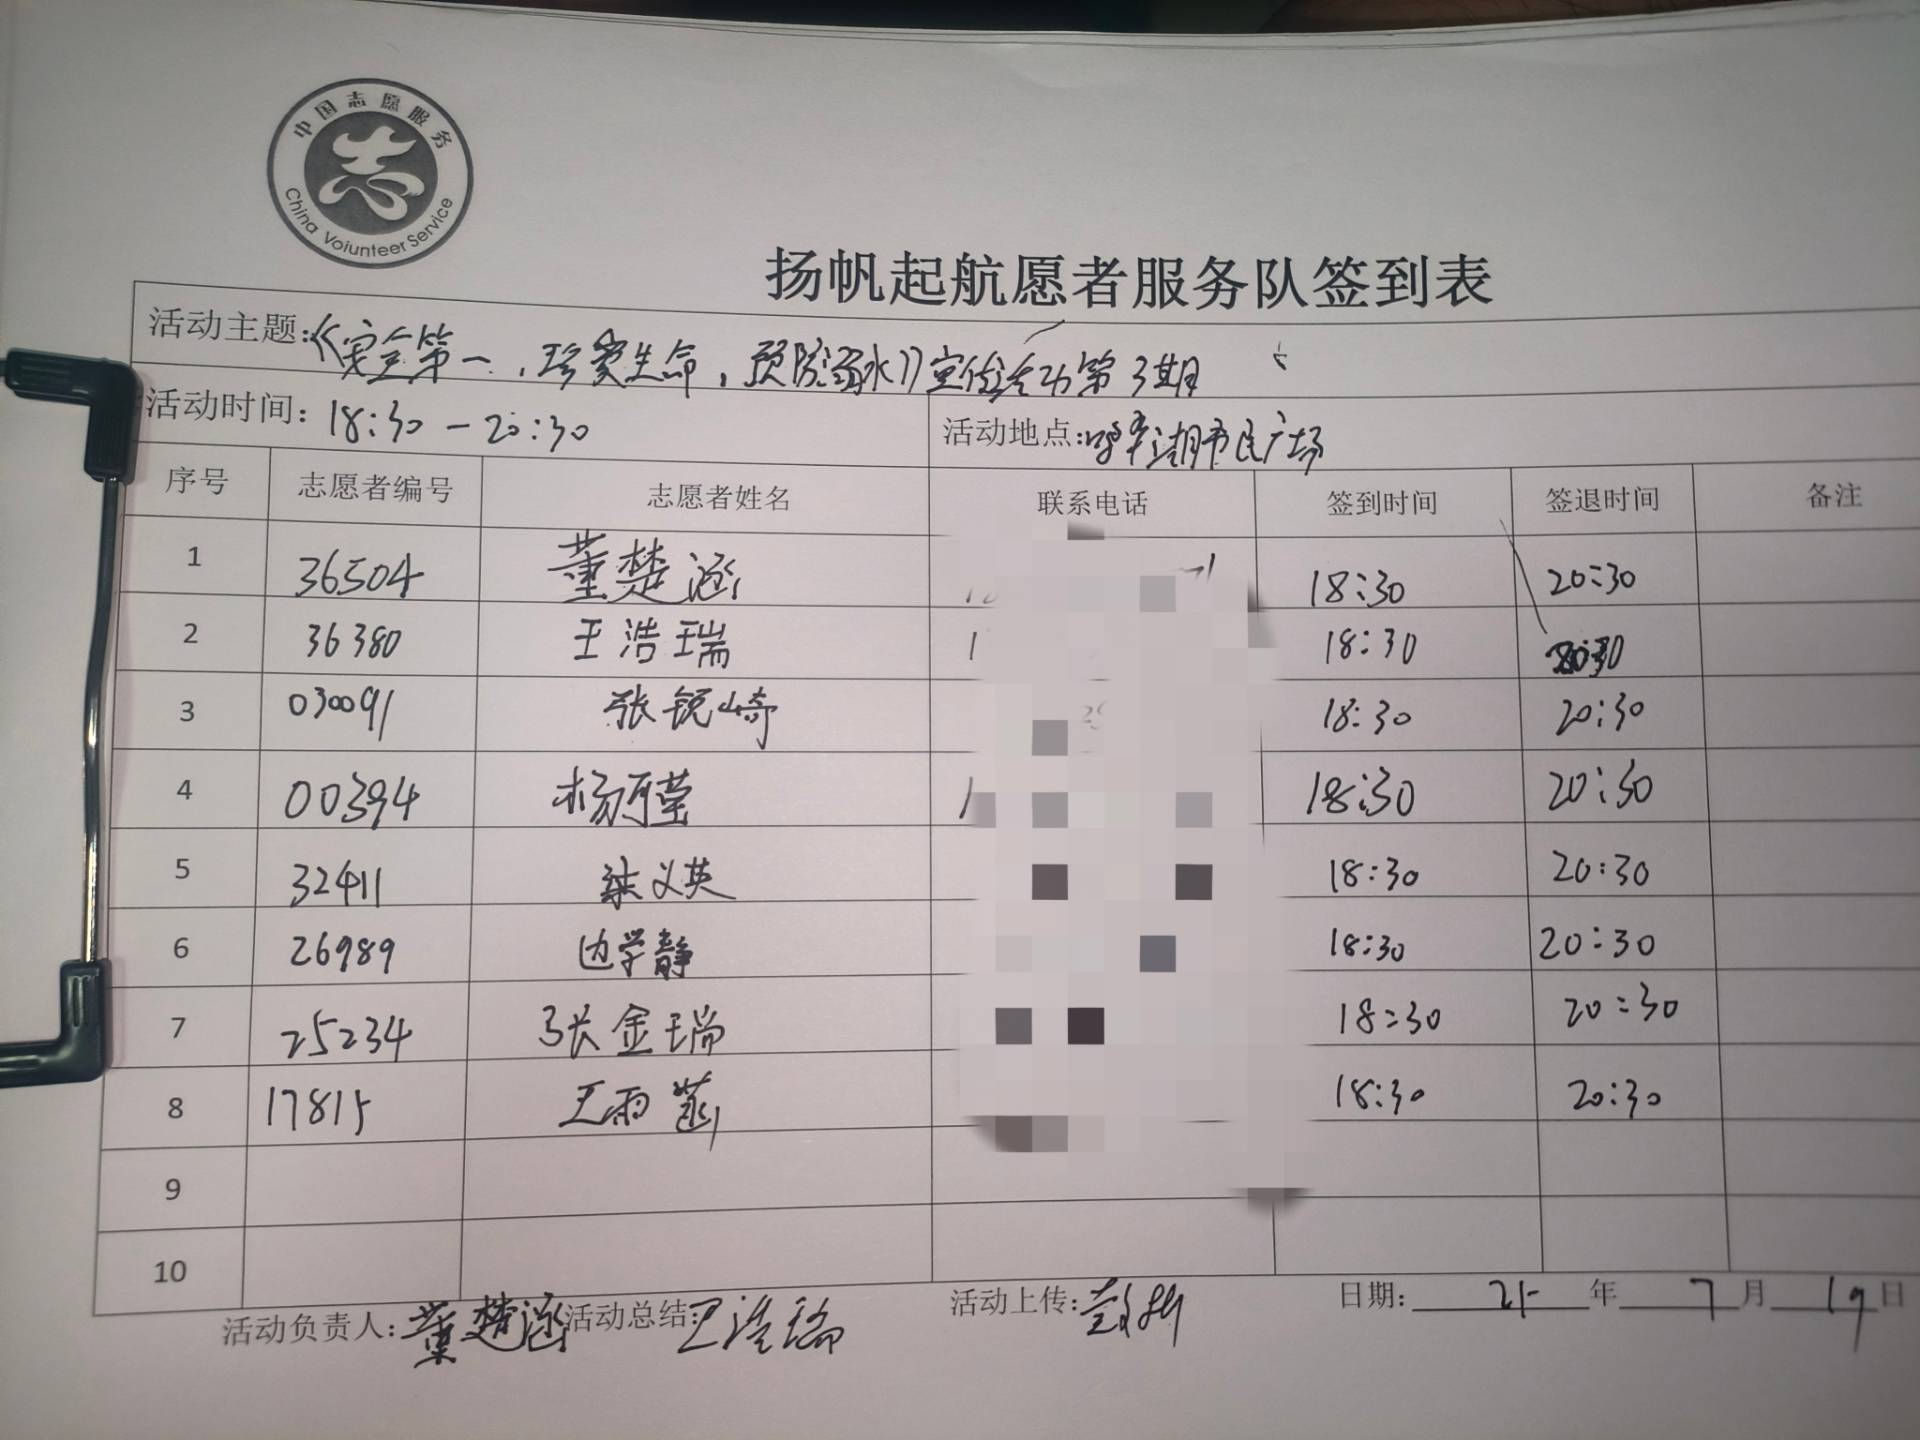 中国志愿服务
China Voiunteer Service
扬帆起航愿者服务队签到表
活动主题:《安全第一,珍爱生命,预防溺水》宣传活动第3期
活动时间: 18:30-20:30 活动地点: 平湖市民广场
序号 志愿者编号 志愿者姓名 联系电话 签到时间 签退时间 备注
1 36504 董楚涵 18:30 20:30
2 36380 王浩瑞 18:30 20:30
3 030091 张锐崎 18:30 20:30
4 00394 杨可莹 18:30 20:30
5 32411 梁义英 18:30 20:30
6 26989 边学静 18:30 20:30
7 25234 张金瑞 18:30 20:30
8 17815 王雨菡 18:30 20:30
9
10
活动负责人: 董楚涵 活动总结: 王浩瑞 活动上传: 日期: 25年7月19日